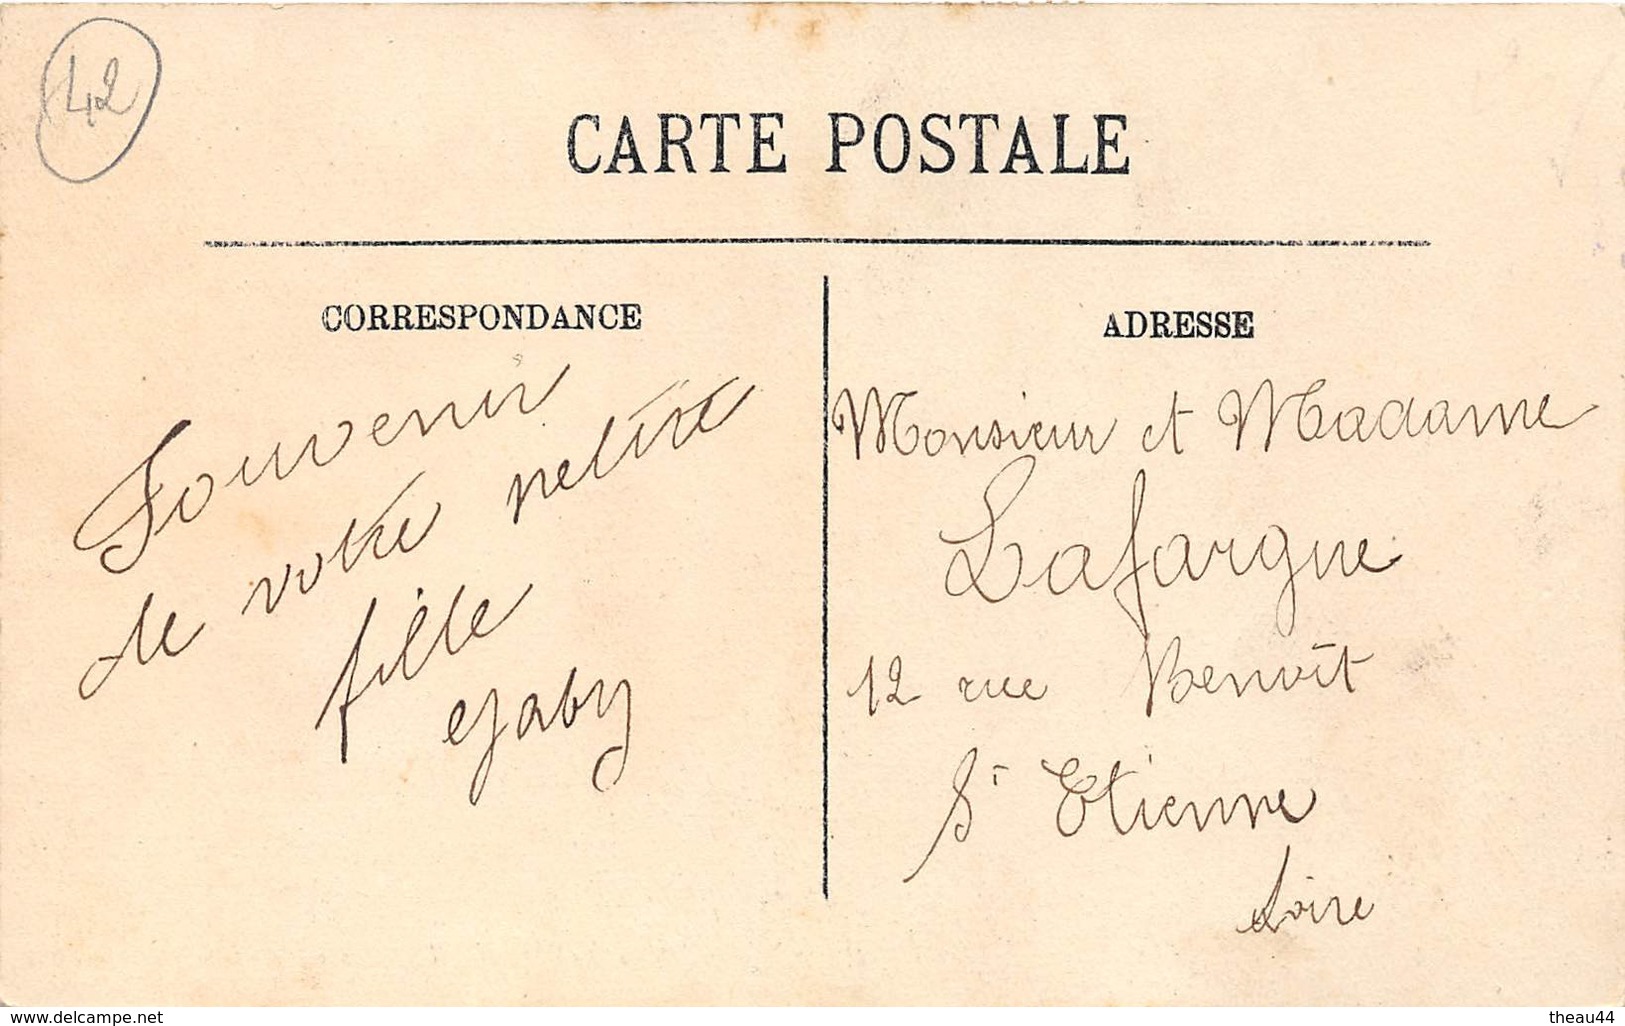 42
CARTE POSTALE
CORRESPONDANCE
Souvenir
de votre petite
fille
Gaby
ADRESSE
Monsieur et Madame
Lafargue
12 rue Benoît
St Etienne
Loire
www.delcampe.net
theau44